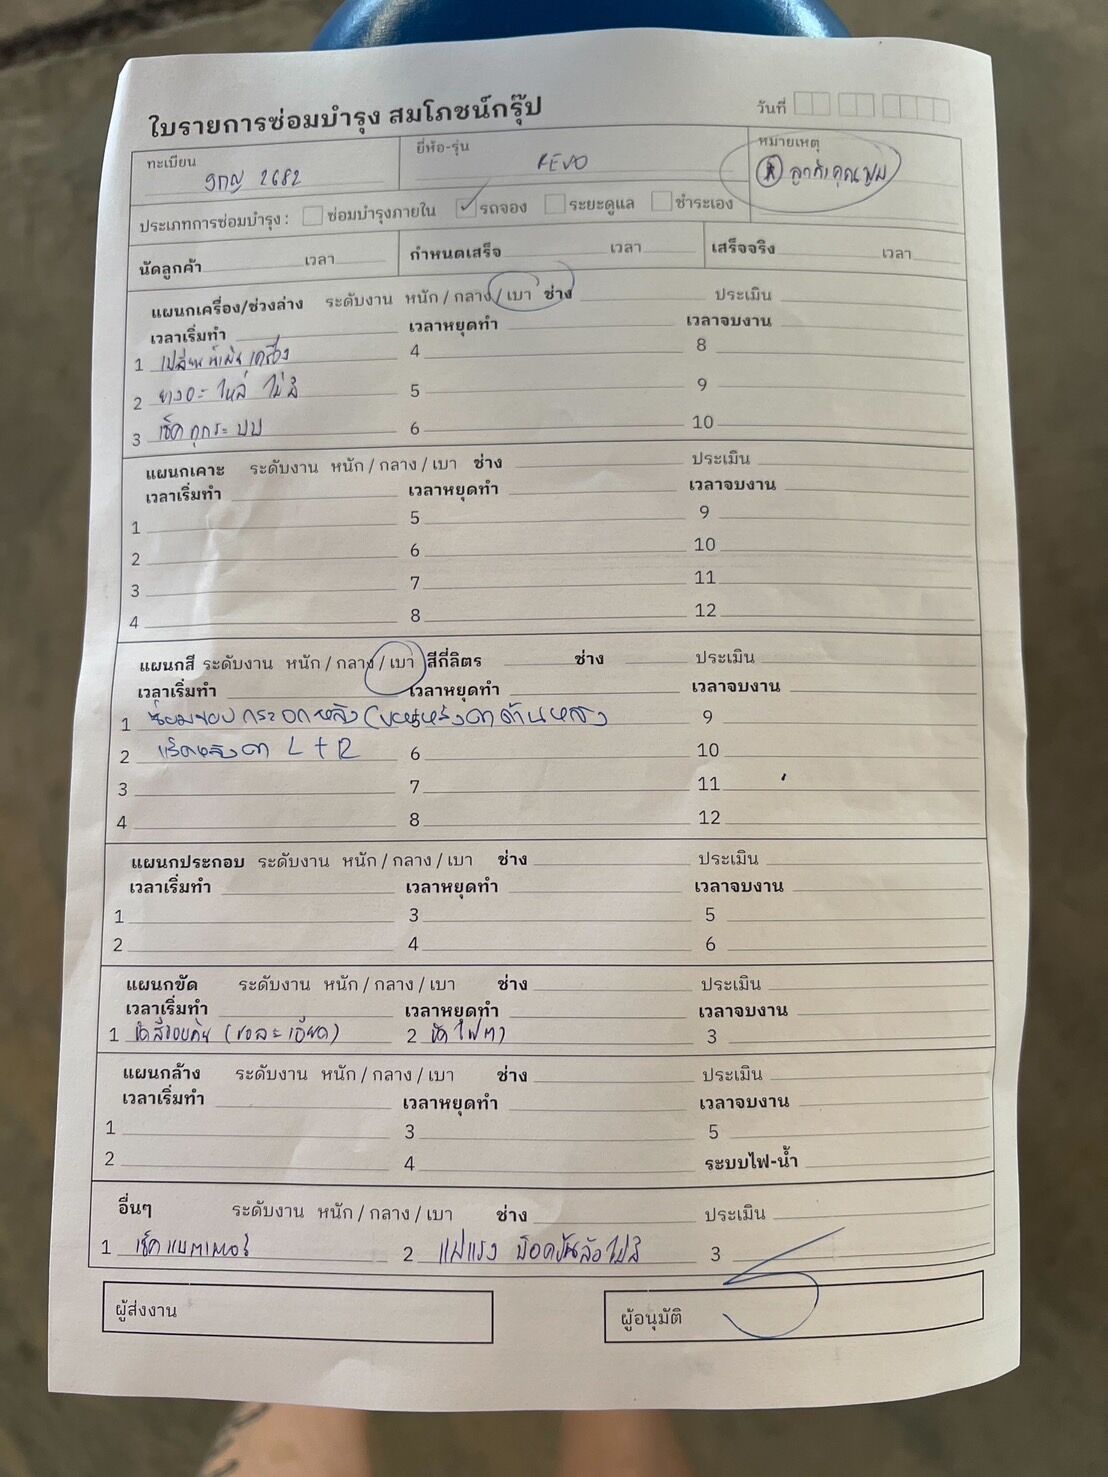 ใบรายการซ่อมบำรุง สมโภชน์กรุ๊ป
วันที่
ทะเบียน 2682
ยี่ห้อ-รุ่น REVO
หมายเหตุ ลูกค้าคุณ
ประเภทการซ่อมบำรุง : ซ่อมบำรุงภายใน ✓ รถจอง ระยะดูแล ชำระเอง
นัดลูกค้า เวลา กำหนดเสร็จ เวลา เสร็จจริง เวลา
แผนกเครื่อง/ช่วงล่าง ระดับงาน หนัก / กลาง / เบา ช่าง ประเมิน
เวลาเริ่มทำ เวลาหยุดทำ เวลาจบงาน
1 เครื่อง 4 8
2 ยางอะไหล่ ไม่มี 5 9
3 เช็คทุกระบบ 6 10
แผนกเคาะ ระดับงาน หนัก / กลาง / เบา ช่าง ประเมิน
เวลาเริ่มทำ เวลาหยุดทำ เวลาจบงาน
1 5 9
2 6 10
3 7 11
4 8 12
แผนกสี ระดับงาน หนัก / กลาง / เบา สีกี่ลิตร ช่าง ประเมิน
เวลาเริ่มทำ เวลาหยุดทำ เวลาจบงาน
1 ซ่อมขอบกระจกหลัง ด้านหลัง 9
2 หลังคา L + R 6 10
3 7 11
4 8 12
แผนกประกอบ ระดับงาน หนัก / กลาง / เบา ช่าง ประเมิน
เวลาเริ่มทำ เวลาหยุดทำ เวลาจบงาน
1 3 5
2 4 6
แผนกขัด ระดับงาน หนัก / กลาง / เบา ช่าง ประเมิน
เวลาเริ่มทำ เวลาหยุดทำ เวลาจบงาน
1 ขัดสีรอบคัน (ขอละเอียด) 2 ขัดไฟตา 3
แผนกล้าง ระดับงาน หนัก / กลาง / เบา ช่าง ประเมิน
เวลาเริ่มทำ เวลาหยุดทำ เวลาจบงาน
1 3 5
2 4 ระบบไฟ-น้ำ
อื่นๆ ระดับงาน หนัก / กลาง / เบา ช่าง ประเมิน
1 เช็คแบตเตอรี่ 2 แม่แรง บล็อคขันล้อไม่มี 3
ผู้ส่งงาน ผู้อนุมัติ